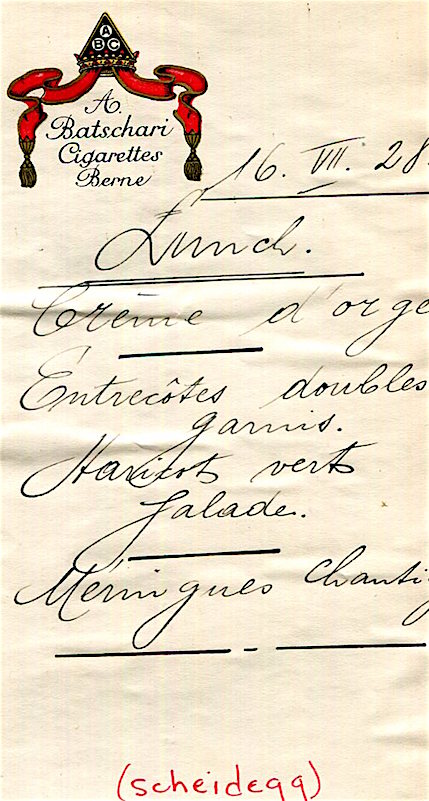 A
B C
A.
Batschari
Cigarettes
Berne
16. VII. 28.
Lunch.
Crème d'orge
Entrecôtes doubles
garnis.
Haricots verts
Salade.
Méringues Chantig
(scheidegg)